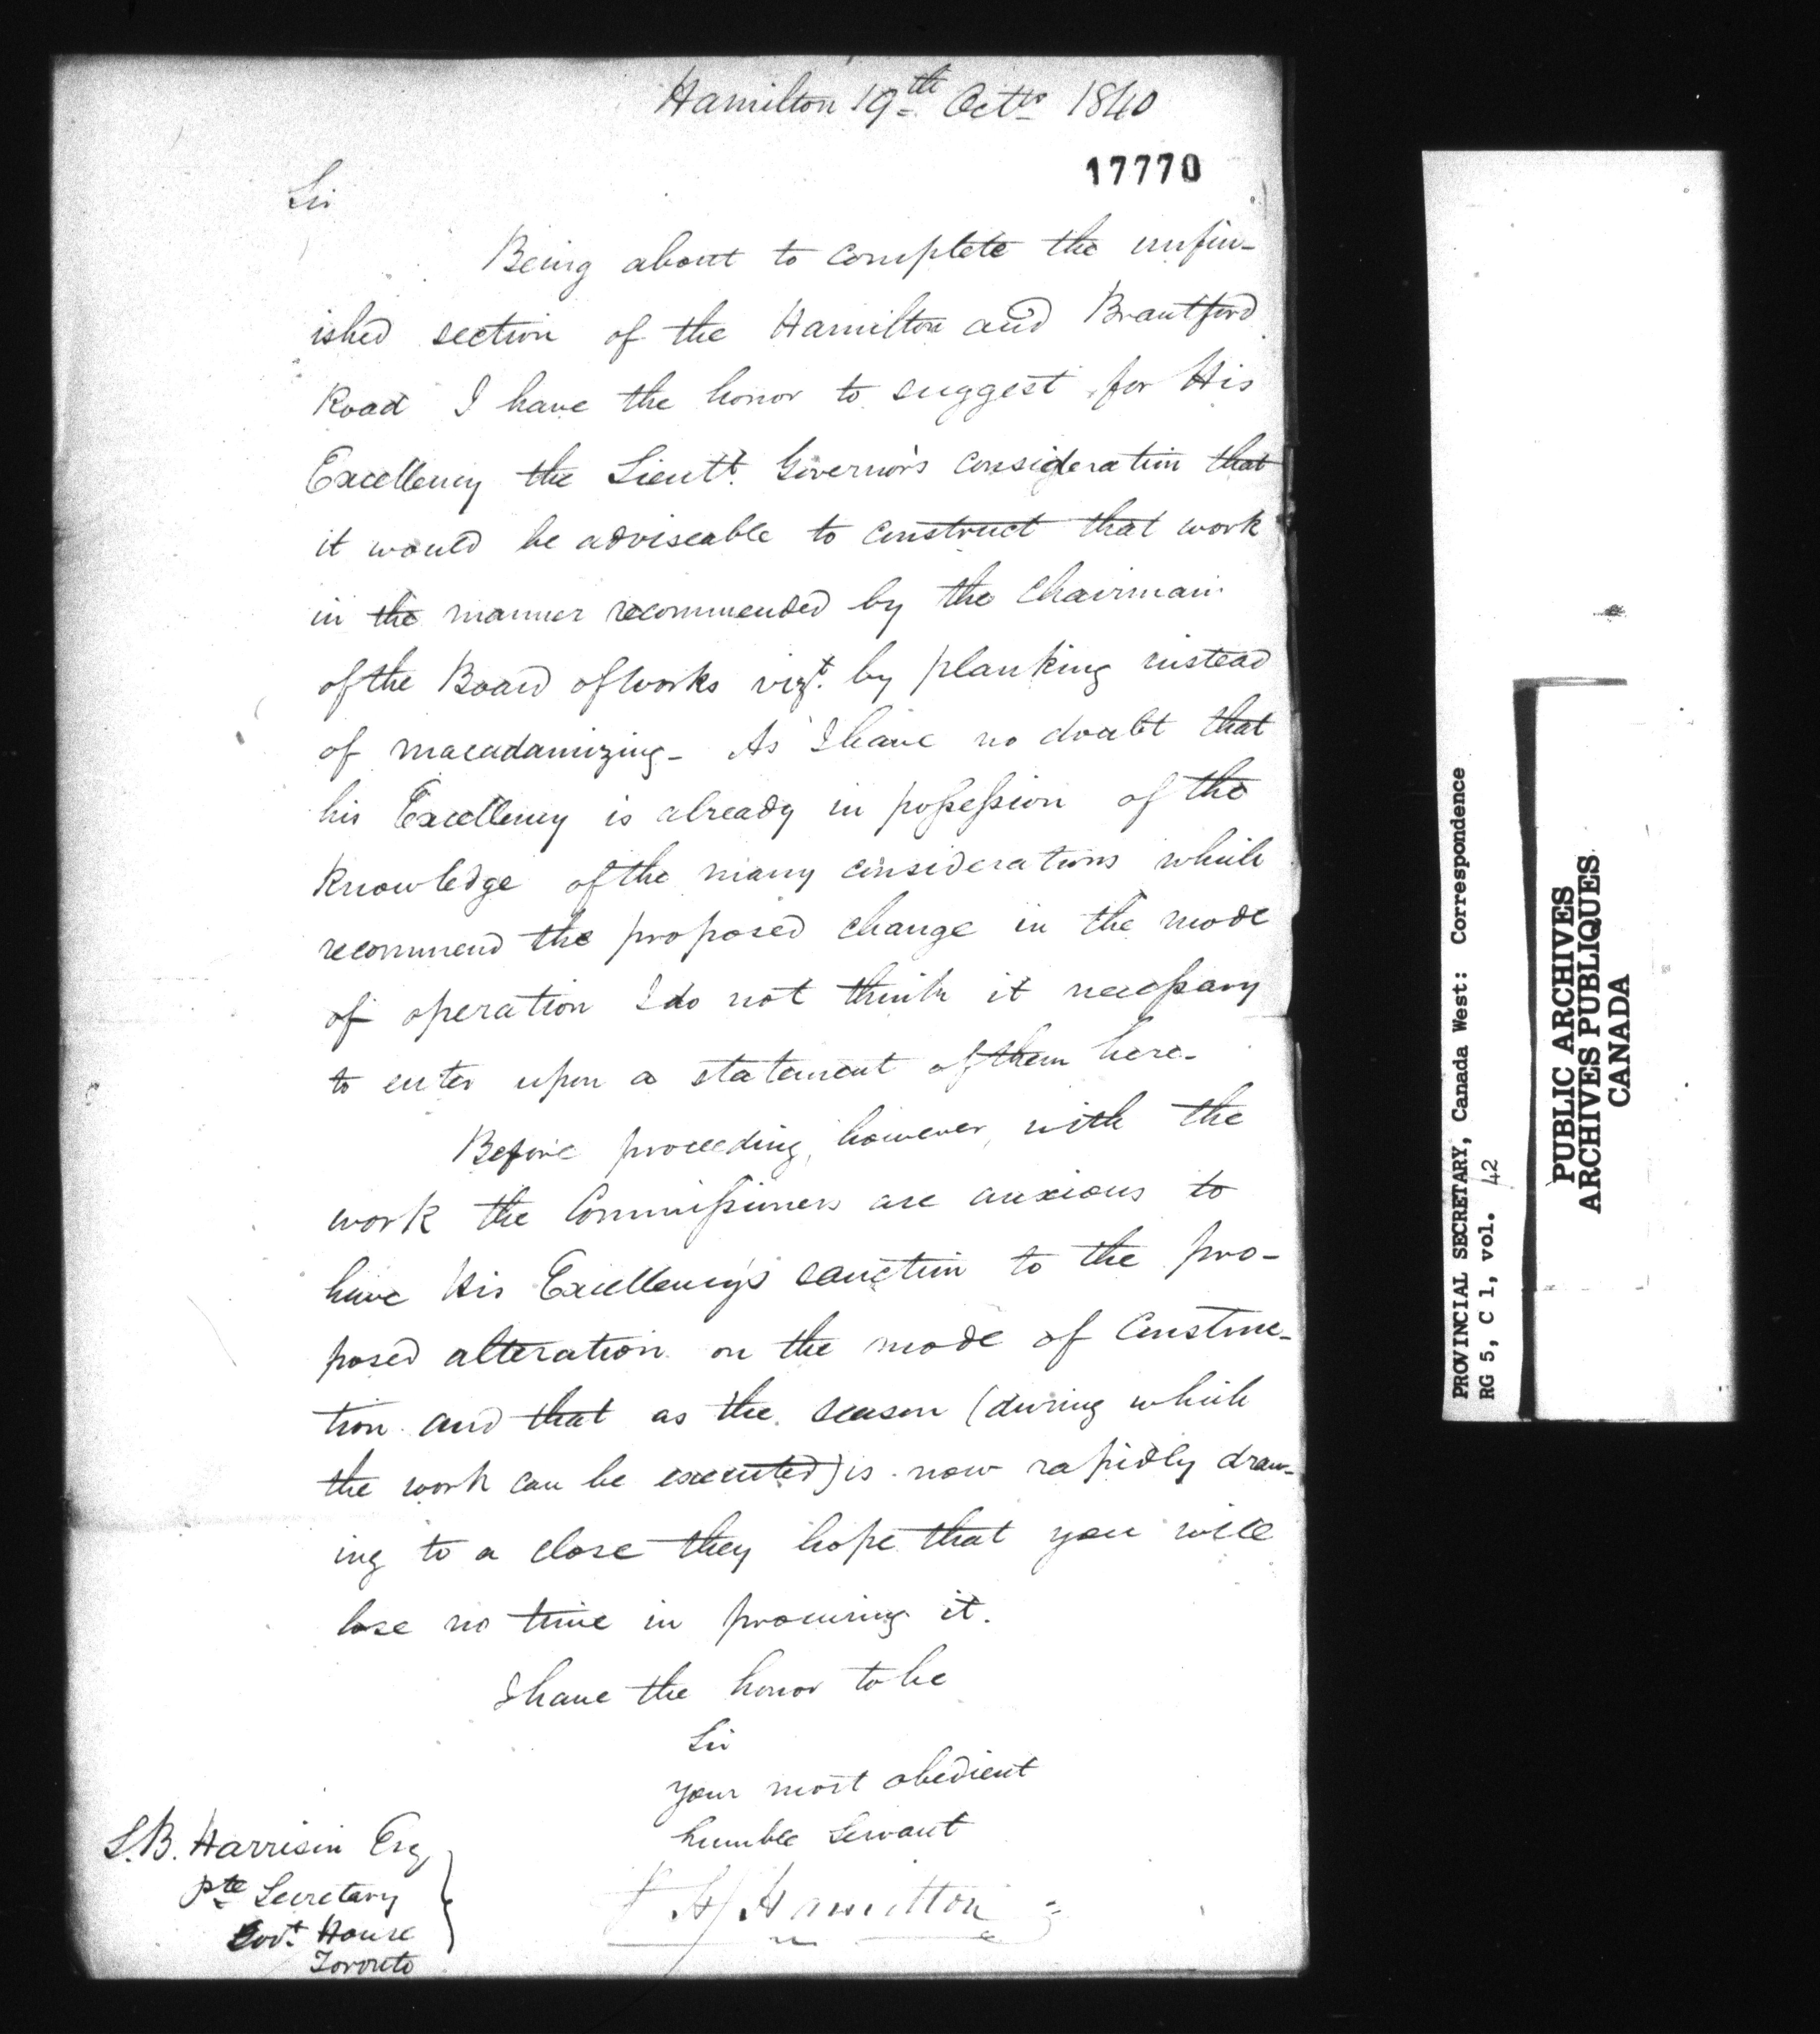 Hamilton 19th Octr 1840
17770
Sir
Being about to complete the unfin-
ished section of the Hamilton and Brantford
Road I have the honor to suggest for His
Excellency the Lieutt. Governor's consideration that
it would be adviseable to construct that work
in the manner recommended by the Chairman
of the Board of Works vizt. by planking instead
of macadamizing - As I have no doubt that
his Excellency is already in possession of the
knowledge of the many considerations which
recommend the proposed change in the mode
of operation I do not think it necessary
to enter upon a statement of them here -
Before proceeding, however, with the
work the Commissioners are anxious to
have His Excellency's sanction to the pro-
posed alteration on the mode of Construc-
tion and that as the season (during which
the work can be executed) is now rapidly draw-
ing to a close they hope that you will
lose no time in procuring it.
I have the honor to be
Sir
your most obedient
humble Servant
Hamilton
S.B. Harrison Esq
Pte Secretary
Govt. House
Toronto
PROVINCIAL SECRETARY, Canada West: Correspondence
RG 5, C 1, vol. 42
PUBLIC ARCHIVES
ARCHIVES PUBLIQUES
CANADA